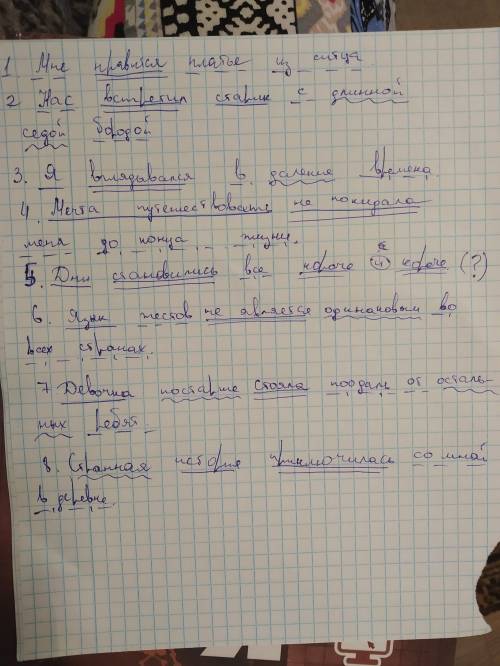 1 Мне нравится платье из ситца
2 Нас встретил старик с длинной
седой бородой
3. Я вглядывался в далекие времена
4. Мечта путешествовать не покидала
меня до конца жизни.
5. Дни становились все короче и короче (?)
6. Язык жестов не является одинаковым во
всех странах.
7 Девочка постарше стояла поодаль от осталь-
ных ребят.
8. Странная история приключилась со мной
в деревне.